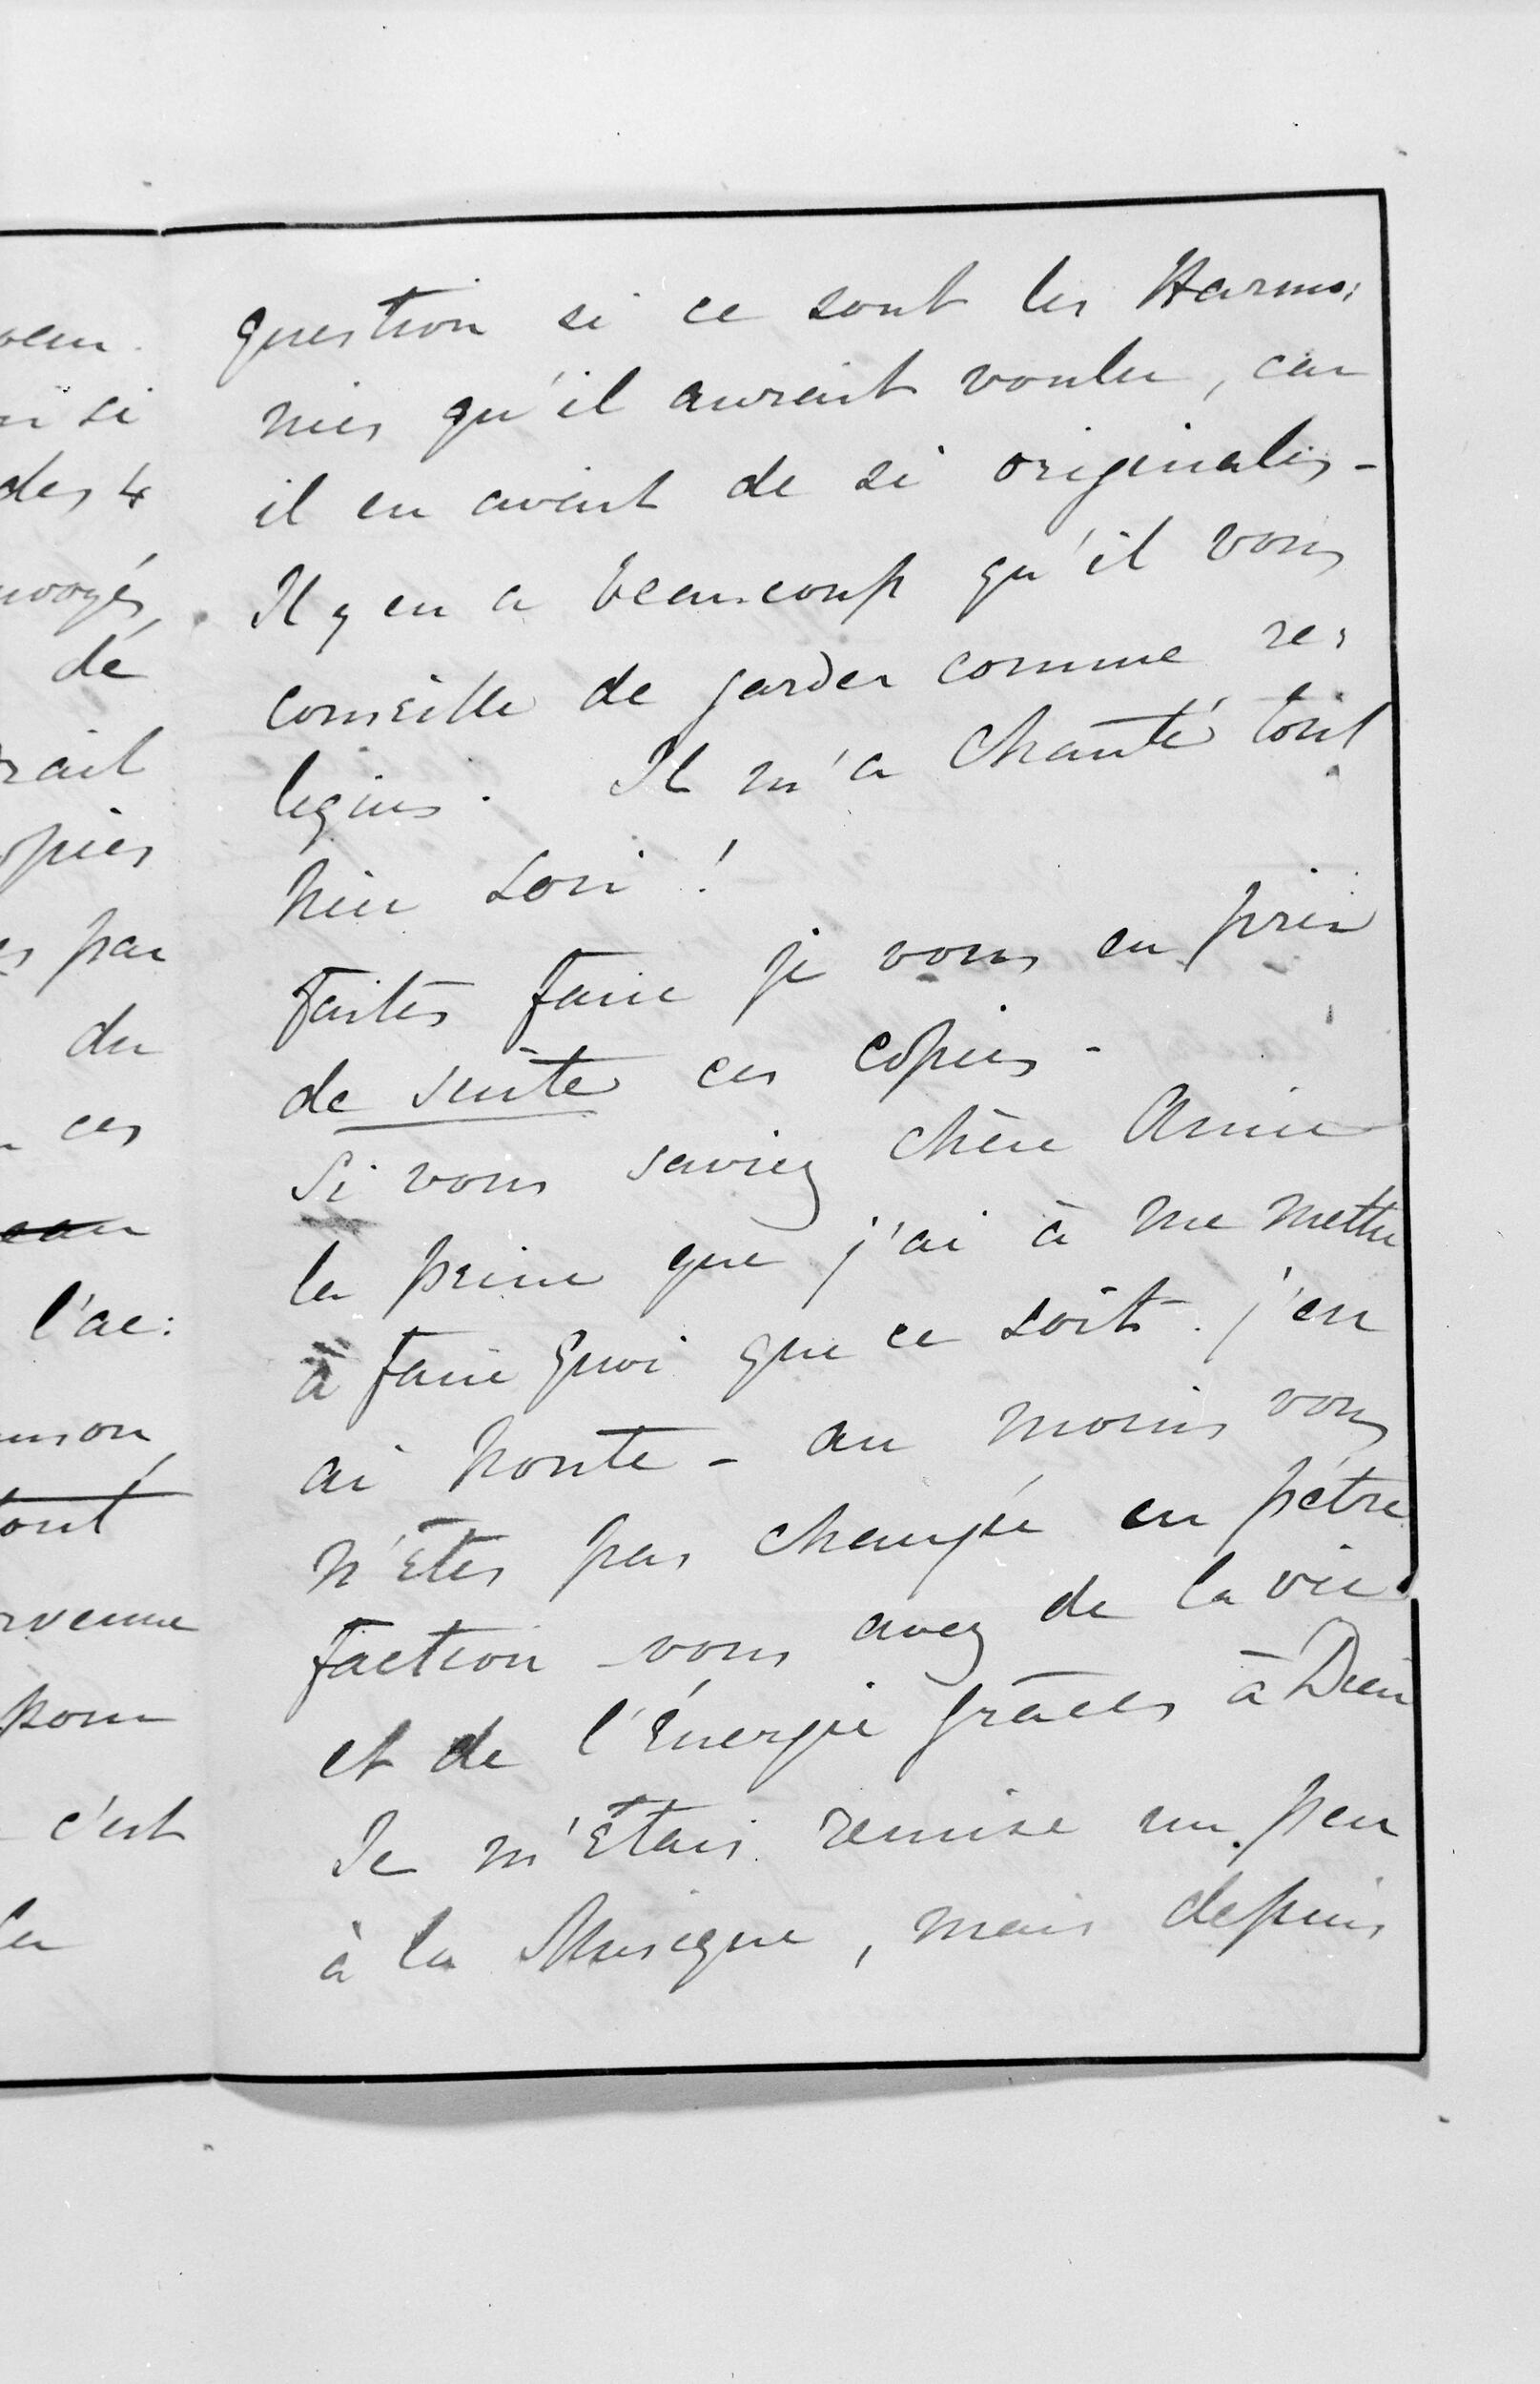 veau.
si
des 4
nvoyés,
dé
rait
opies
es par
du
ces
eau
l'ac:
unson,
tout
rvenue
pour
c'est
la
question si ce sont les Harmo:
nies qu'il aurait voulu, car
il en avait de si originales -
Il y en a beaucoup qu'il vous
conseille de garder comme re:
liques. Il m'a chanté tout
hier soir !
Faites faire je vous en prie
de suite ces copies -
Si vous saviez chère Amie
la peine que j'ai à me mettre
à faire quoi que ce soit. j'en
ai honte - au moins vous
n'êtes pas changée en pétré
faction - vous avez de la vie
et de l'Énergie grâces à Dieu
Je m'étais remise un peu
à la Musique, mais depuis